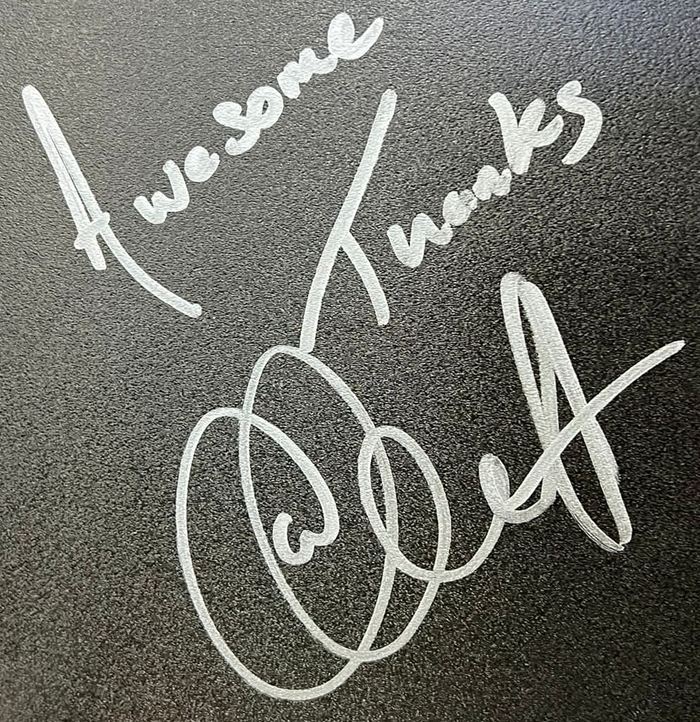 Awesome
Thanks